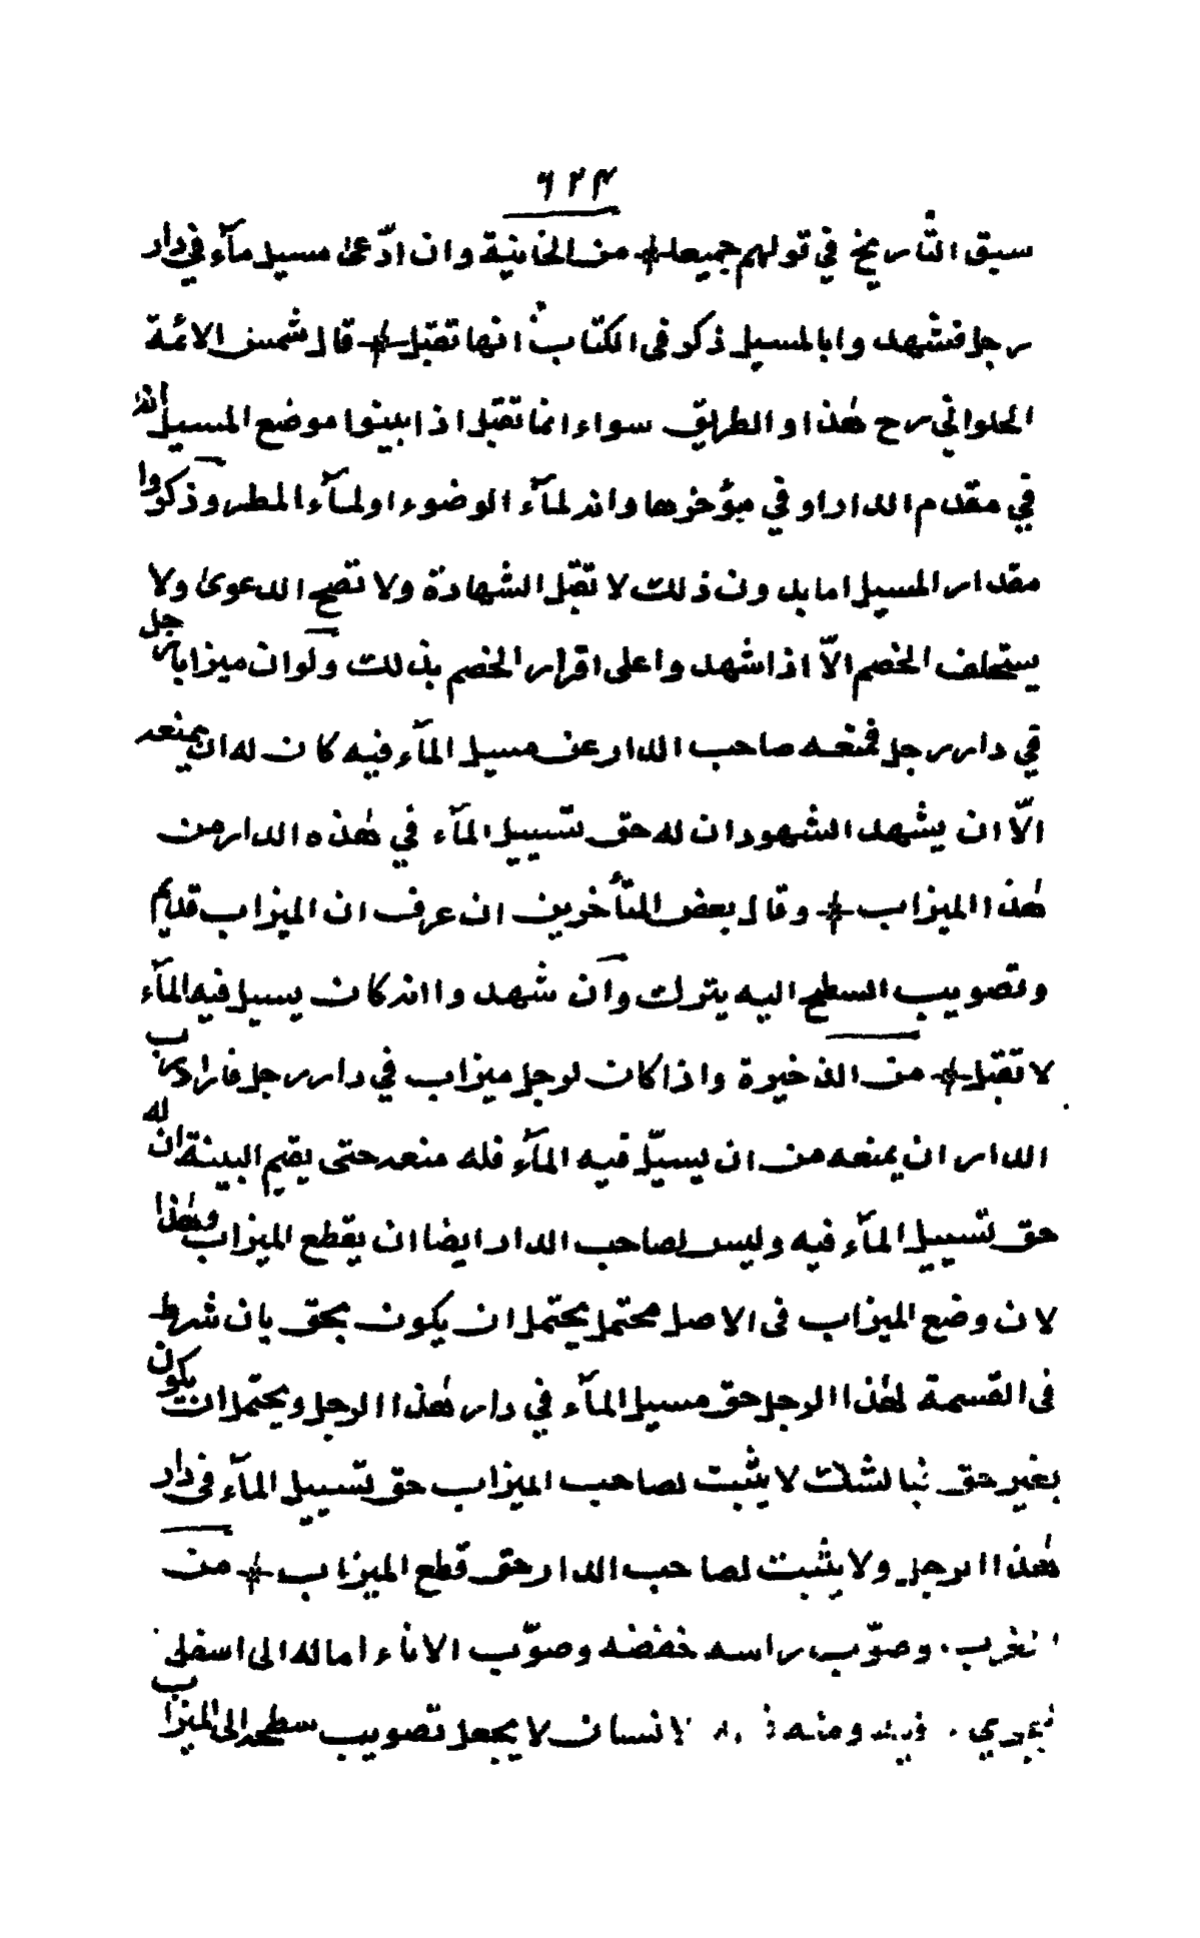 ٦٢٣
سبق التأريخ في قولهم جميعا من الخانية وان ادّعى مسيل مآء في دار
رجل فشهدوا بالمسيل ذكر في الكتاب انها تقبل قال شمس الائمة
الحلواني رح هٰذا والطريق سواء انما تقبل اذا بينوا موضع المسيل انه
في مقدم الدار او في مؤخرها وانه لمآء الوضوء او لمآء المطر وذكروا
مقدار المسيل اما بدون ذلك لا تقبل الشهادة ولا تصح الدعوى ولا
يستحلف الخصم الاّ اذا شهدوا على اقرار الخصم بذلك ولو ان ميزابا لرجل
في دار رجل فمنعه صاحب الدار عن مسيل المآء فيه كان له ان يمنعه
الاّ ان يشهد الشهود ان له حق تسييل المآء في هٰذه الدار من
هٰذا الميزاب وقال بعض المتأخرين ان عرف ان الميزاب قديم
وتصويب السطح اليه يترك وان شهدوا انه كان يسيل فيه المآء
لا تقبل من الذخيرة واذا كان لرجل ميزاب في دار رجل فاراد رب
الدار ان يمنعه من ان يسيّل فيه المآء فله منعه حتى يقيم البينة ان له
حق تسييل المآء فيه وليس لصاحب الدار ايضا ان يقطع الميزاب وهٰذا
لان وضع الميزاب في الاصل محتمل يحتمل ان يكون بحق بان شرط
في القسمة لهٰذا الرجل حق مسيل المآء في دار هٰذا الرجل ويحتمل ان يكون
بغير حق فبالشك لا يثبت لصاحب الميزاب حق تسييل المآء في دار
هٰذا الرجل ولا يثبت لصاحب الدار حق قطع الميزاب من
المغرب وصوّب راسه خفضه وصوّب الاناء اماله الى اسفل
ليجري فيه ومنه لانسان لا يجعل تصويب سطحه الى الميزاب